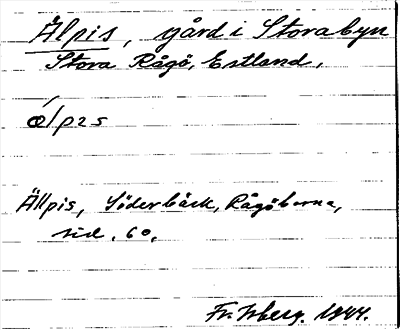 Älpis, gård i Storabyn
Stora Rågö, Estland,
ǽlpɪs
Ällpis, Söderbäck, Rågöborna,
sid. 60.
Fr. Isberg. 1944.